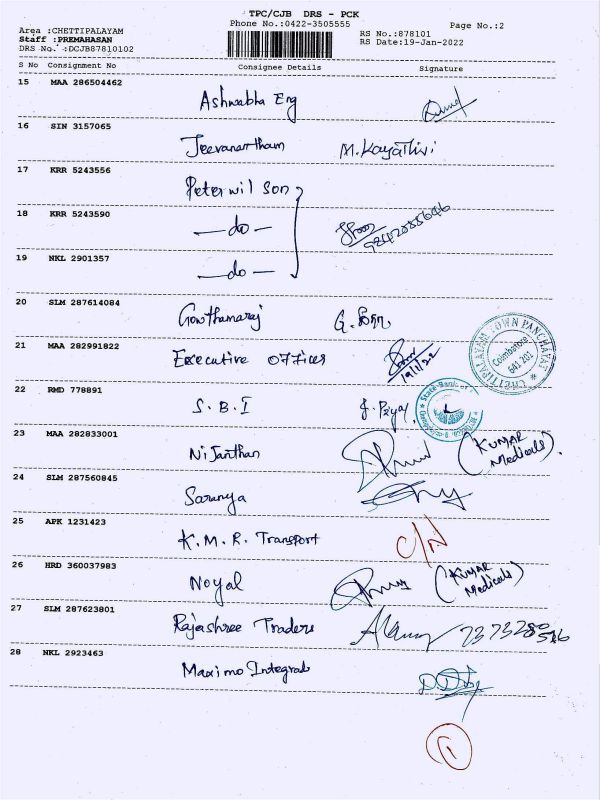 TPC/CJB DRS - PCK
Phone No.:0422-3505555
Page No.:2
Area :CHETTIPALAYAM
Staff :PREMAHASAN
DRS No. :DCJB87810102
RS No.:878101
RS Date:19-Jan-2022
S No Consignment No Consignee Details Signature
15 MAA 286504462 Ashwabha Eng
16 SIN 3157065 Jeevanantham M. Kayathivi
17 KRR 5243556 Peter wilson
18 KRR 5243590 — do —
19 NKL 2901357 — do —
20 SLM 287614084 Gowthamaraj G.
21 MAA 282991822 Executive officer 19/1/22
CHETTIPALAYAM TOWN PANCHAYAT
Coimbatore
641 201
22 RMD 778891 S.B.I J. Priya
State Bank of
23 MAA 282833001 Nijanthan (KUMAR Medicals).
24 SLM 287560845 Saranya
25 APK 1231423 K.M.R. Transport C/N
26 HRD 360037983 Noyal (KUMAR Medicals)
27 SLM 287623801 Rajashree Traders
28 NKL 2923463 Maximo Integral
1